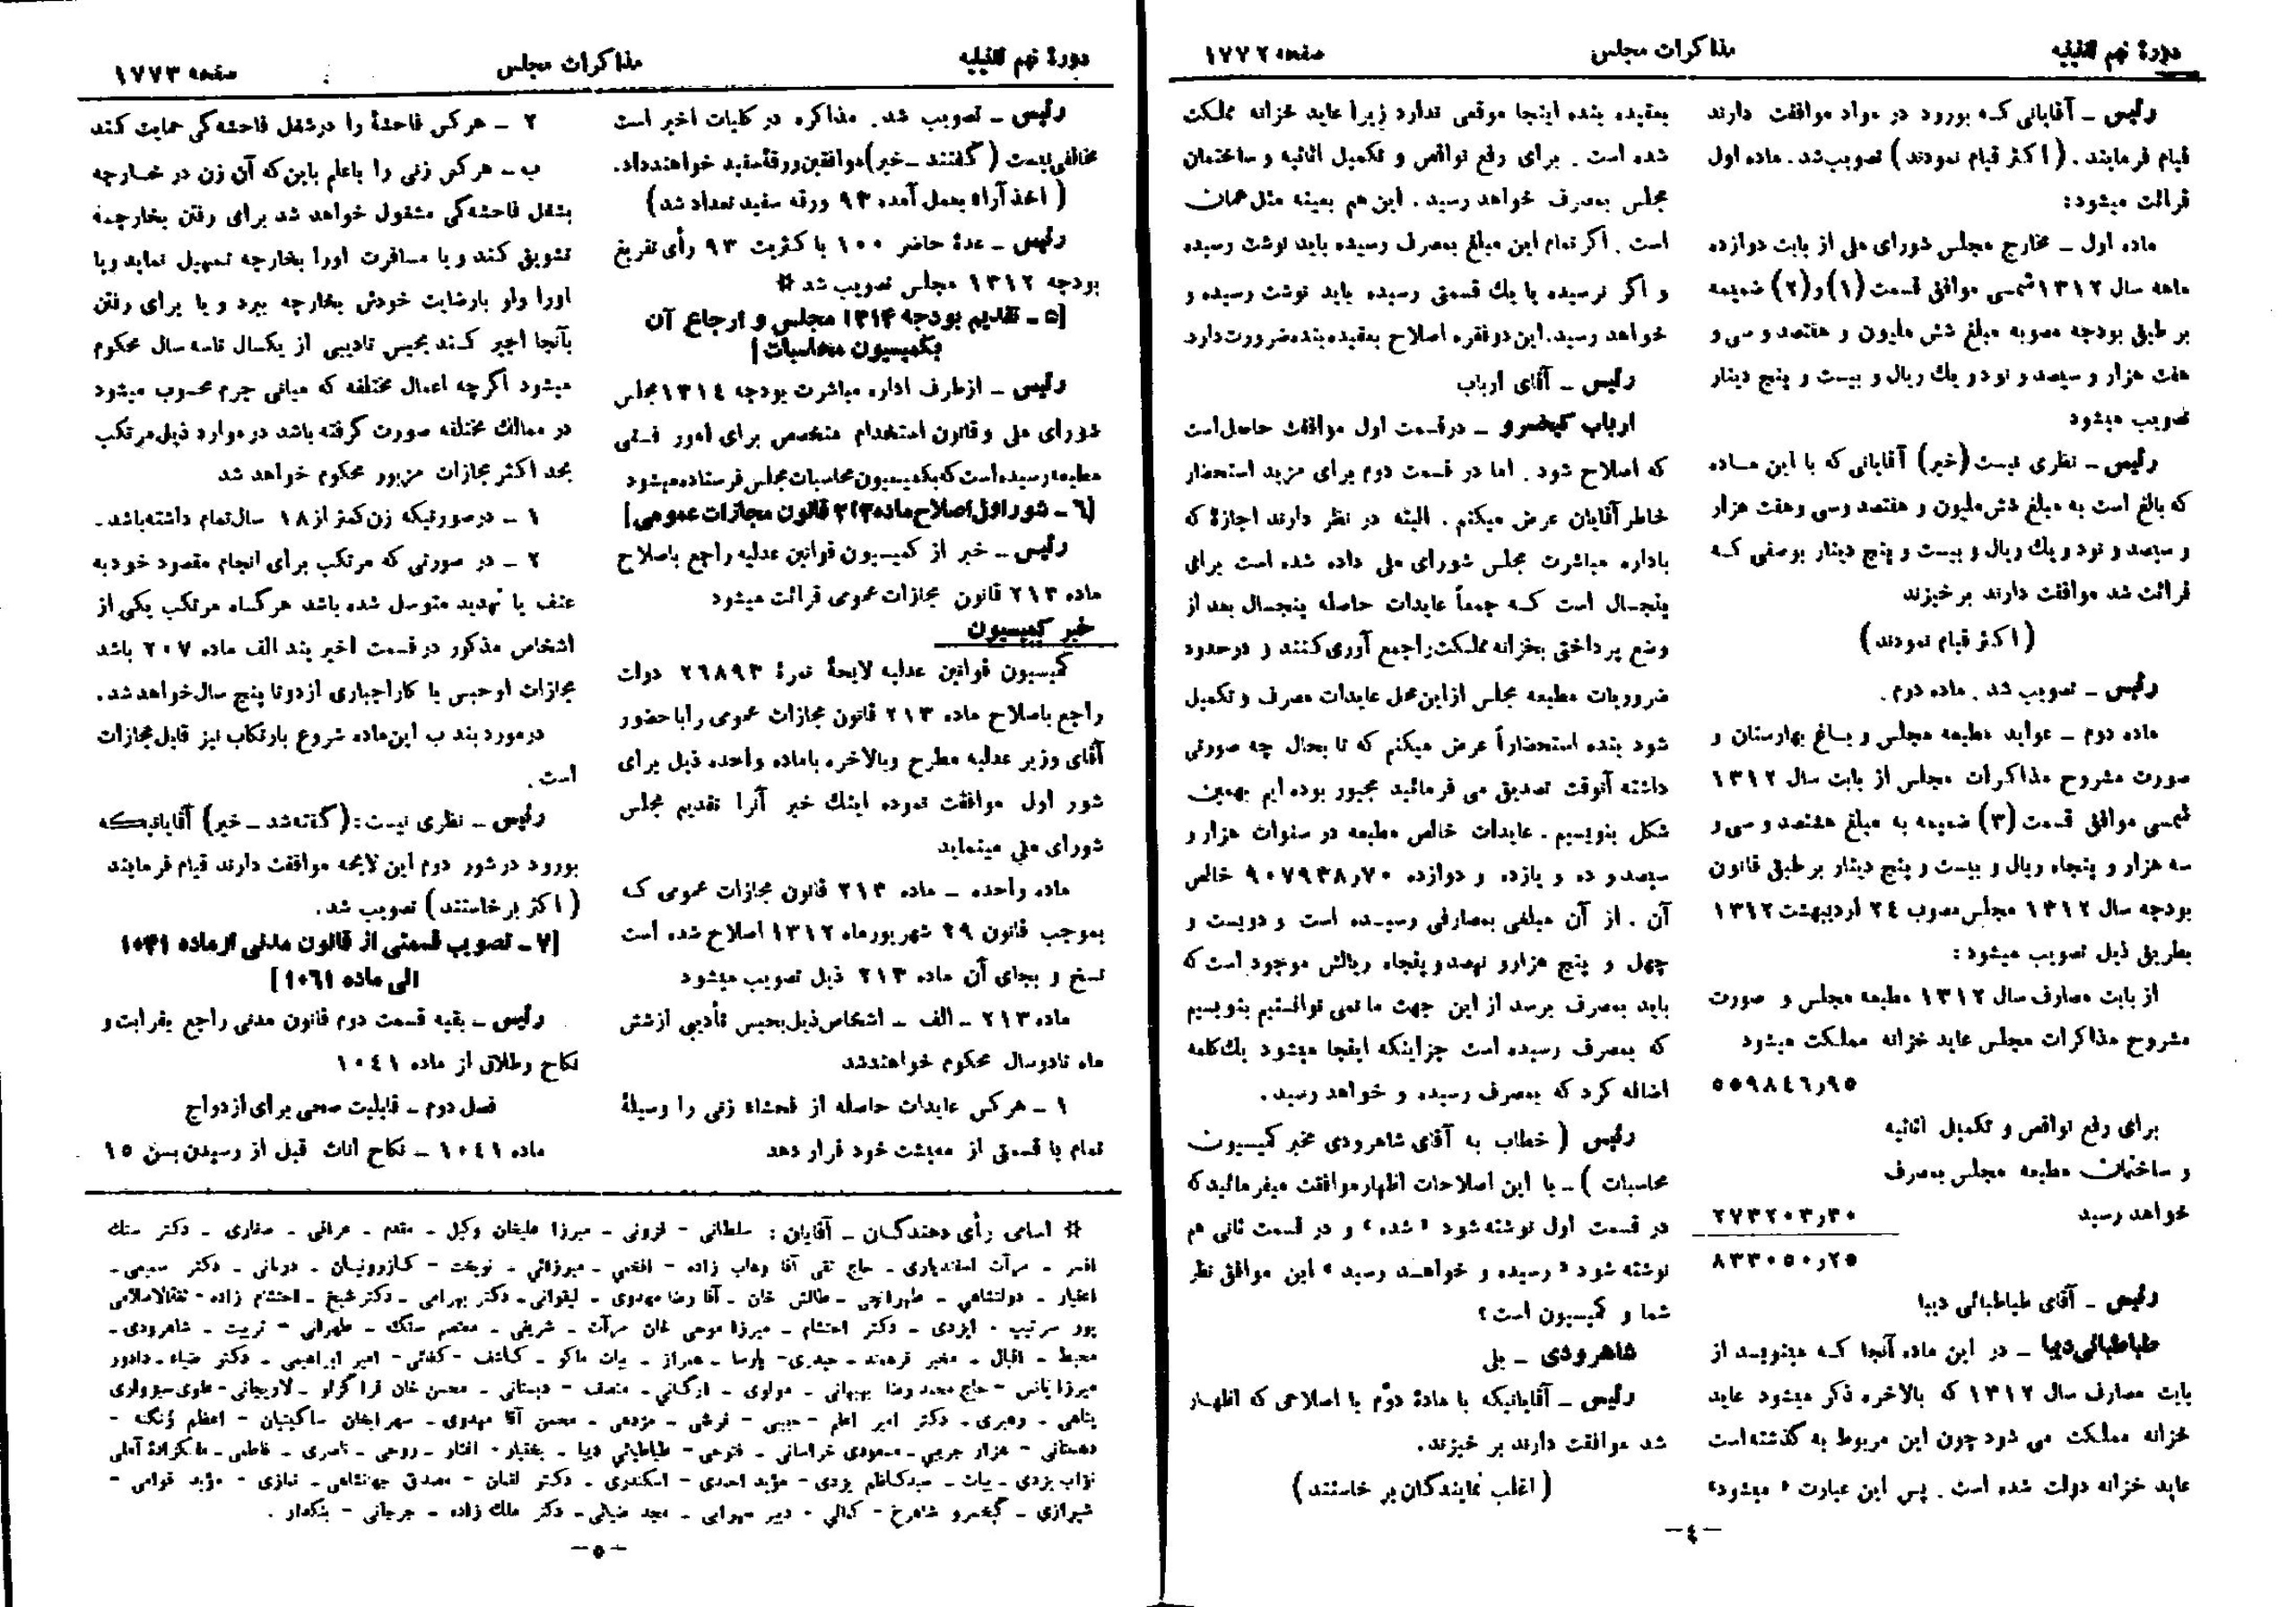 دورهٔ نهم تقنینیه
مذاکرات مجلس
صفحه ۱۷۷۲
رئیس ـ آقایانی که بورود در مواد موافقت دارند
قیام فرمایند. (اکثر قیام نمودند) تصویب شد. ماده اول
قرائت میشود:
ماده اول ـ مخارج مجلس شورای ملی از بابت دوازده
ماهه سال ۱۳۱۲ شمسی موافق قسمت (۱) و (۲) ضمیمه
بر طبق بودجه مصوبه مبلغ شش ملیون و هفتصد و سی و
هفت هزار و سیصد و نود و یك ریال و بیست و پنج دینار
تصویب میشود
رئیس ـ نظری نیست (خیر) آقایانی که با این ماده
که بالغ است به مبلغ شش ملیون و هفتصد و سی و هفت هزار
و سیصد و نود و یك ریال و بیست و پنج دینار بوصفی که
قرائت شد موافقت دارند برخیزند
(اکثر قیام نمودند)
رئیس ـ تصویب شد. ماده دوم.
ماده دوم ـ عواید مطبعه مجلس و باغ بهارستان و
صورت مشروح مذاکرات مجلس از بابت سال ۱۳۱۲
شمسی موافق قسمت (۳) ضمیمه به مبلغ هشتصد و سی و
سه هزار و پنجاه ریال و بیست و پنج دینار بر طبق قانون
بودجه سال ۱۳۱۲ مجلس مصوب ۲٤ اردیبهشت ۱۳۱۲
بطریق ذیل تصویب میشود:
از بابت مصارف سال ۱۳۱۲ مطبعه مجلس و صورت
مشروح مذاکرات مجلس عاید خزانه مملکت میشود
۵۵۹۸٤٦٫۹۵
برای رفع نواقص و تکمیل اثاثیه
و ساختمان مطبعه مجلس بمصرف
خواهد رسید ۲۷۳۲۰۳٫۳۰
۸۳۳۰۵۰٫۲۵
رئیس ـ آقای طباطبائی دیبا
طباطبائی دیبا ـ در این ماده آنجا که مینویسد از
بابت مصارف سال ۱۳۱۲ که بالاخره ذکر میشود عاید
خزانه مملکت می شود چون این مربوط به گذشته است
عاید خزانه دولت شده است. پس این عبارت «میشود»
بعقیده بنده اینجا موقعی ندارد زیرا عاید خزانه مملکت
شده است. برای رفع نواقص و تکمیل اثاثیه و ساختمان
مجلس بمصرف خواهد رسید. این هم بعینه مثل همان
است. اگر تمام این مبلغ بمصرف رسیده باید نوشت رسیده
و اگر نرسیده یا یك قسمتی رسیده باید نوشت رسیده و
خواهد رسید. این دو فقره اصلاح بعقیده بنده ضرورت دارد
رئیس ـ آقای ارباب
ارباب کیخسرو ـ در قسمت اول موافقت حاصل است
که اصلاح شود. اما در قسمت دوم برای مزید استحضار
خاطر آقایان عرض میکنم. البته در نظر دارند اجازهٔ که
باداره مباشرت مجلس شورای ملی داده شده است برای
پنجسال است که جمعاً عایدات حاصله پنجسال بعد از
وضع پرداختی بخزانه مملکت را جمع آوری کنند و در حدود
ضروریات مطبعه مجلس از این محل عایدات مصرف و تکمیل
شود بنده استحضاراً عرض میکنم که تا بحال چه صورتی
داشته آنوقت تصدیق می فرمائید مجبور بوده ایم بهمین
شکل بنویسیم. عایدات خالص مطبعه در سنوات هزار و
سیصد و ده و یازده و دوازده ۹۰۷۹۳۸٫۷۰ خالص
آن. از آن مبلغی بمصارفی رسیده است و دویست و
چهل و پنج هزار و نهصد و پنجاه ریالش موجود است که
باید بمصرف برسد از این جهت ما نمی توانستیم بنویسیم
که بمصرف رسیده است جز اینکه اینجا میشود یك کلمه
اضافه کرد که بمصرف رسیده و خواهد رسید.
رئیس (خطاب به آقای شاهرودی مخبر کمیسیون
محاسبات) ـ با این اصلاحات اظهار موافقت میفرمائید که
در قسمت اول نوشته شود «شده» و در قسمت ثانی هم
نوشته شود «رسیده و خواهد رسید» این موافق نظر
شما و کمیسیون است؟
شاهرودی ـ بلی
رئیس ـ آقایانیکه با مادهٔ دوّم با اصلاحی که اظهار
شد موافقت دارند بر خیزند.
(اغلب نمایندگان بر خاستند)
ـ٤ـ
دورهٔ نهم تقنینیه
مذاکرات مجلس
صفحه ۱۷۷۳
رئیس ـ تصویب شد. مذاکره در کلیات اخیر است
مخالفی نیست (گفتند ـ خیر) موافقین ورقهٔ سفید خواهند داد.
(اخذ آراء بعمل آمده ۹۳ ورقه سفید تعداد شد)
رئیس ـ عدهٔ حاضر ۱۰۰ با کثریت ۹۳ رأی تفریغ
بودجه ۱۳۱۲ مجلس تصویب شد #
[۵ ـ تقدیم بودجه ۱۳۱۴ مجلس و ارجاع آن
بکمیسیون محاسبات]
رئیس ـ از طرف اداره مباشرت بودجه ۱۳۱٤ مجلس
شورای ملی و قانون استخدام متخصص برای امور فنی
مطبعه رسیده است که بکمیسیون محاسبات مجلس فرستاده میشود
[٦ ـ شور اول اصلاح ماده ۲۱۳ قانون مجازات عمومی]
رئیس ـ خبر از کمیسیون قوانین عدلیه راجع باصلاح
ماده ۲۱۳ قانون مجازات عمومی قرائت میشود
خبر کمیسیون
کمیسیون قوانین عدلیه لایحهٔ نمرهٔ ۲٦۸۹۳ دولت
راجع باصلاح ماده ۲۱۳ قانون مجازات عمومی را با حضور
آقای وزیر عدلیه مطرح و بالاخره با ماده واحده ذیل برای
شور اول موافقت نموده اینك خبر آنرا تقدیم مجلس
شورای ملی مینماید
ماده واحده ـ ماده ۲۱۳ قانون مجازات عمومی که
بموجب قانون ۲۹ شهریور ماه ۱۳۱۲ اصلاح شده است
نسخ و بجای آن ماده ۲۱۳ ذیل تصویب میشود
ماده ۲۱۳ ـ الف ـ اشخاص ذیل بحبس تأدیبی از شش
ماه تا دو سال محکوم خواهند شد
۱ ـ هر کس عایدات حاصله از فحشاء زنی را وسیلهٔ
تمام یا قسمتی از معیشت خود قرار دهد
۲ ـ هر کس فاحشهٔ را در شغل فاحشه کی حمایت کند
ب ـ هر کس زنی را با علم باین که آن زن در خارجه
بشغل فاحشه کی مشغول خواهد شد برای رفتن بخارجه
تشویق کند و یا مسافرت اورا بخارجه تسهیل نماید و یا
اورا ولو بارضایت خودش بخارجه ببرد و یا برای رفتن
بآنجا اجیر کند بحبس تادیبی از یکسال تا سه سال محکوم
میشود اگر چه اعمال مختلفه که مبانی جرم محسوب میشود
در ممالك مختلفه صورت گرفته باشد در موارد ذیل مرتکب
بحد اکثر مجازات مزبور محکوم خواهد شد
۱ ـ در صورتیکه زن کمتر از ۱۸ سال تمام داشته باشد.
۲ ـ در صورتی که مرتکب برای انجام مقصود خود به
عنف یا تهدید متوسل شده باشد هر گاه مرتکب یکی از
اشخاص مذکور در قسمت اخیر بند الف ماده ۲۰۷ باشد
مجازات او حبس با کار اجباری از دو تا پنج سال خواهد شد.
در مورد بند ب این ماده شروع بارتکاب نیز قابل مجازات
است.
رئیس ـ نظری نیست: (گفته شد ـ خیر) آقایانیکه
بورود در شور دوم این لایحه موافقت دارند قیام فرمایند
(اکثر بر خاستند) تصویب شد.
[۷ ـ تصویب قسمتی از قانون مدنی از ماده ۱۰۴۱
الی ماده ۱۰٦۱]
رئیس ـ بقیه قسمت دوم قانون مدنی راجع بقرابت و
نکاح و طلاق از ماده ۱۰٤۱
فصل دوم ـ قابلیت صحی برای ازدواج
ماده ۱۰٤۱ ـ نکاح اناث قبل از رسیدن بسن ۱۵
# اسامی رأی دهندگان ـ آقایان: سلطانی ـ قزونی ـ میرزا علیخان وکیل ـ مقدم ـ عراقی ـ صفاری ـ دکتر سنك
افسر ـ مرآت اسفندیاری ـ حاج تقی آقا وهاب زاده ـ افخمی ـ میرزائی ـ نوبخت ـ کازرونیان ـ دربانی ـ دکتر سمیعی ـ
اعتبار ـ دولتشاهی ـ طهرانچی ـ طالش خان ـ آقا رضا مهدوی ـ لیقوانی ـ دکتر بهرامی ـ دکتر شیخ ـ احتشام زاده ـ ثقةالاسلامی
پور سرتیپ ـ ایزدی ـ دکتر احتشام ـ میرزا موسی خان مرآت ـ شریفی ـ معتصم سنك ـ طهرانی ـ تربیت ـ شاهرودی ـ
محیط ـ اقبال ـ مخبر فرهمند ـ حیدری ـ پارسا ـ همراز ـ بیات ماکو ـ کاشف ـ کفائی ـ امیر ابراهیمی ـ دکتر ضیاء ـ دادور
میرزا یانس ـ حاج محمد رضا بهبهانی ـ مولوی ـ ارگانی ـ منصف ـ دبستانی ـ محسن خان قراگزلو ـ لاریجانی ـ علوی سبزواری
پناهی ـ رهبری ـ دکتر امیر اعلم ـ حبیبی ـ فرشی ـ مژدهی ـ محسن آقا مهدوی ـ سهراب خان ساگینیان ـ اعظم زنگنه ـ
دهستانی ـ هزار جریبی ـ مسعودی خراسانی ـ فتوحی ـ طباطبائی دیبا ـ بختیار ـ افشار ـ روحی ـ ناصری ـ فاطمی ـ ملکزادهٔ آملی
نواب یزدی ـ بیات ـ سیدکاظم یزدی ـ مؤید احمدی ـ اسکندری ـ دکتر لقمان ـ مصدق جهانشاهی ـ نمازی ـ مؤید قوامی ـ
شیرازی ـ کیخسرو شاهرخ ـ کمالی ـ دبیر سهرابی ـ مجد ضیائی ـ دکتر ملك زاده ـ جرجانی ـ بنکدار.
ـ۵ـ